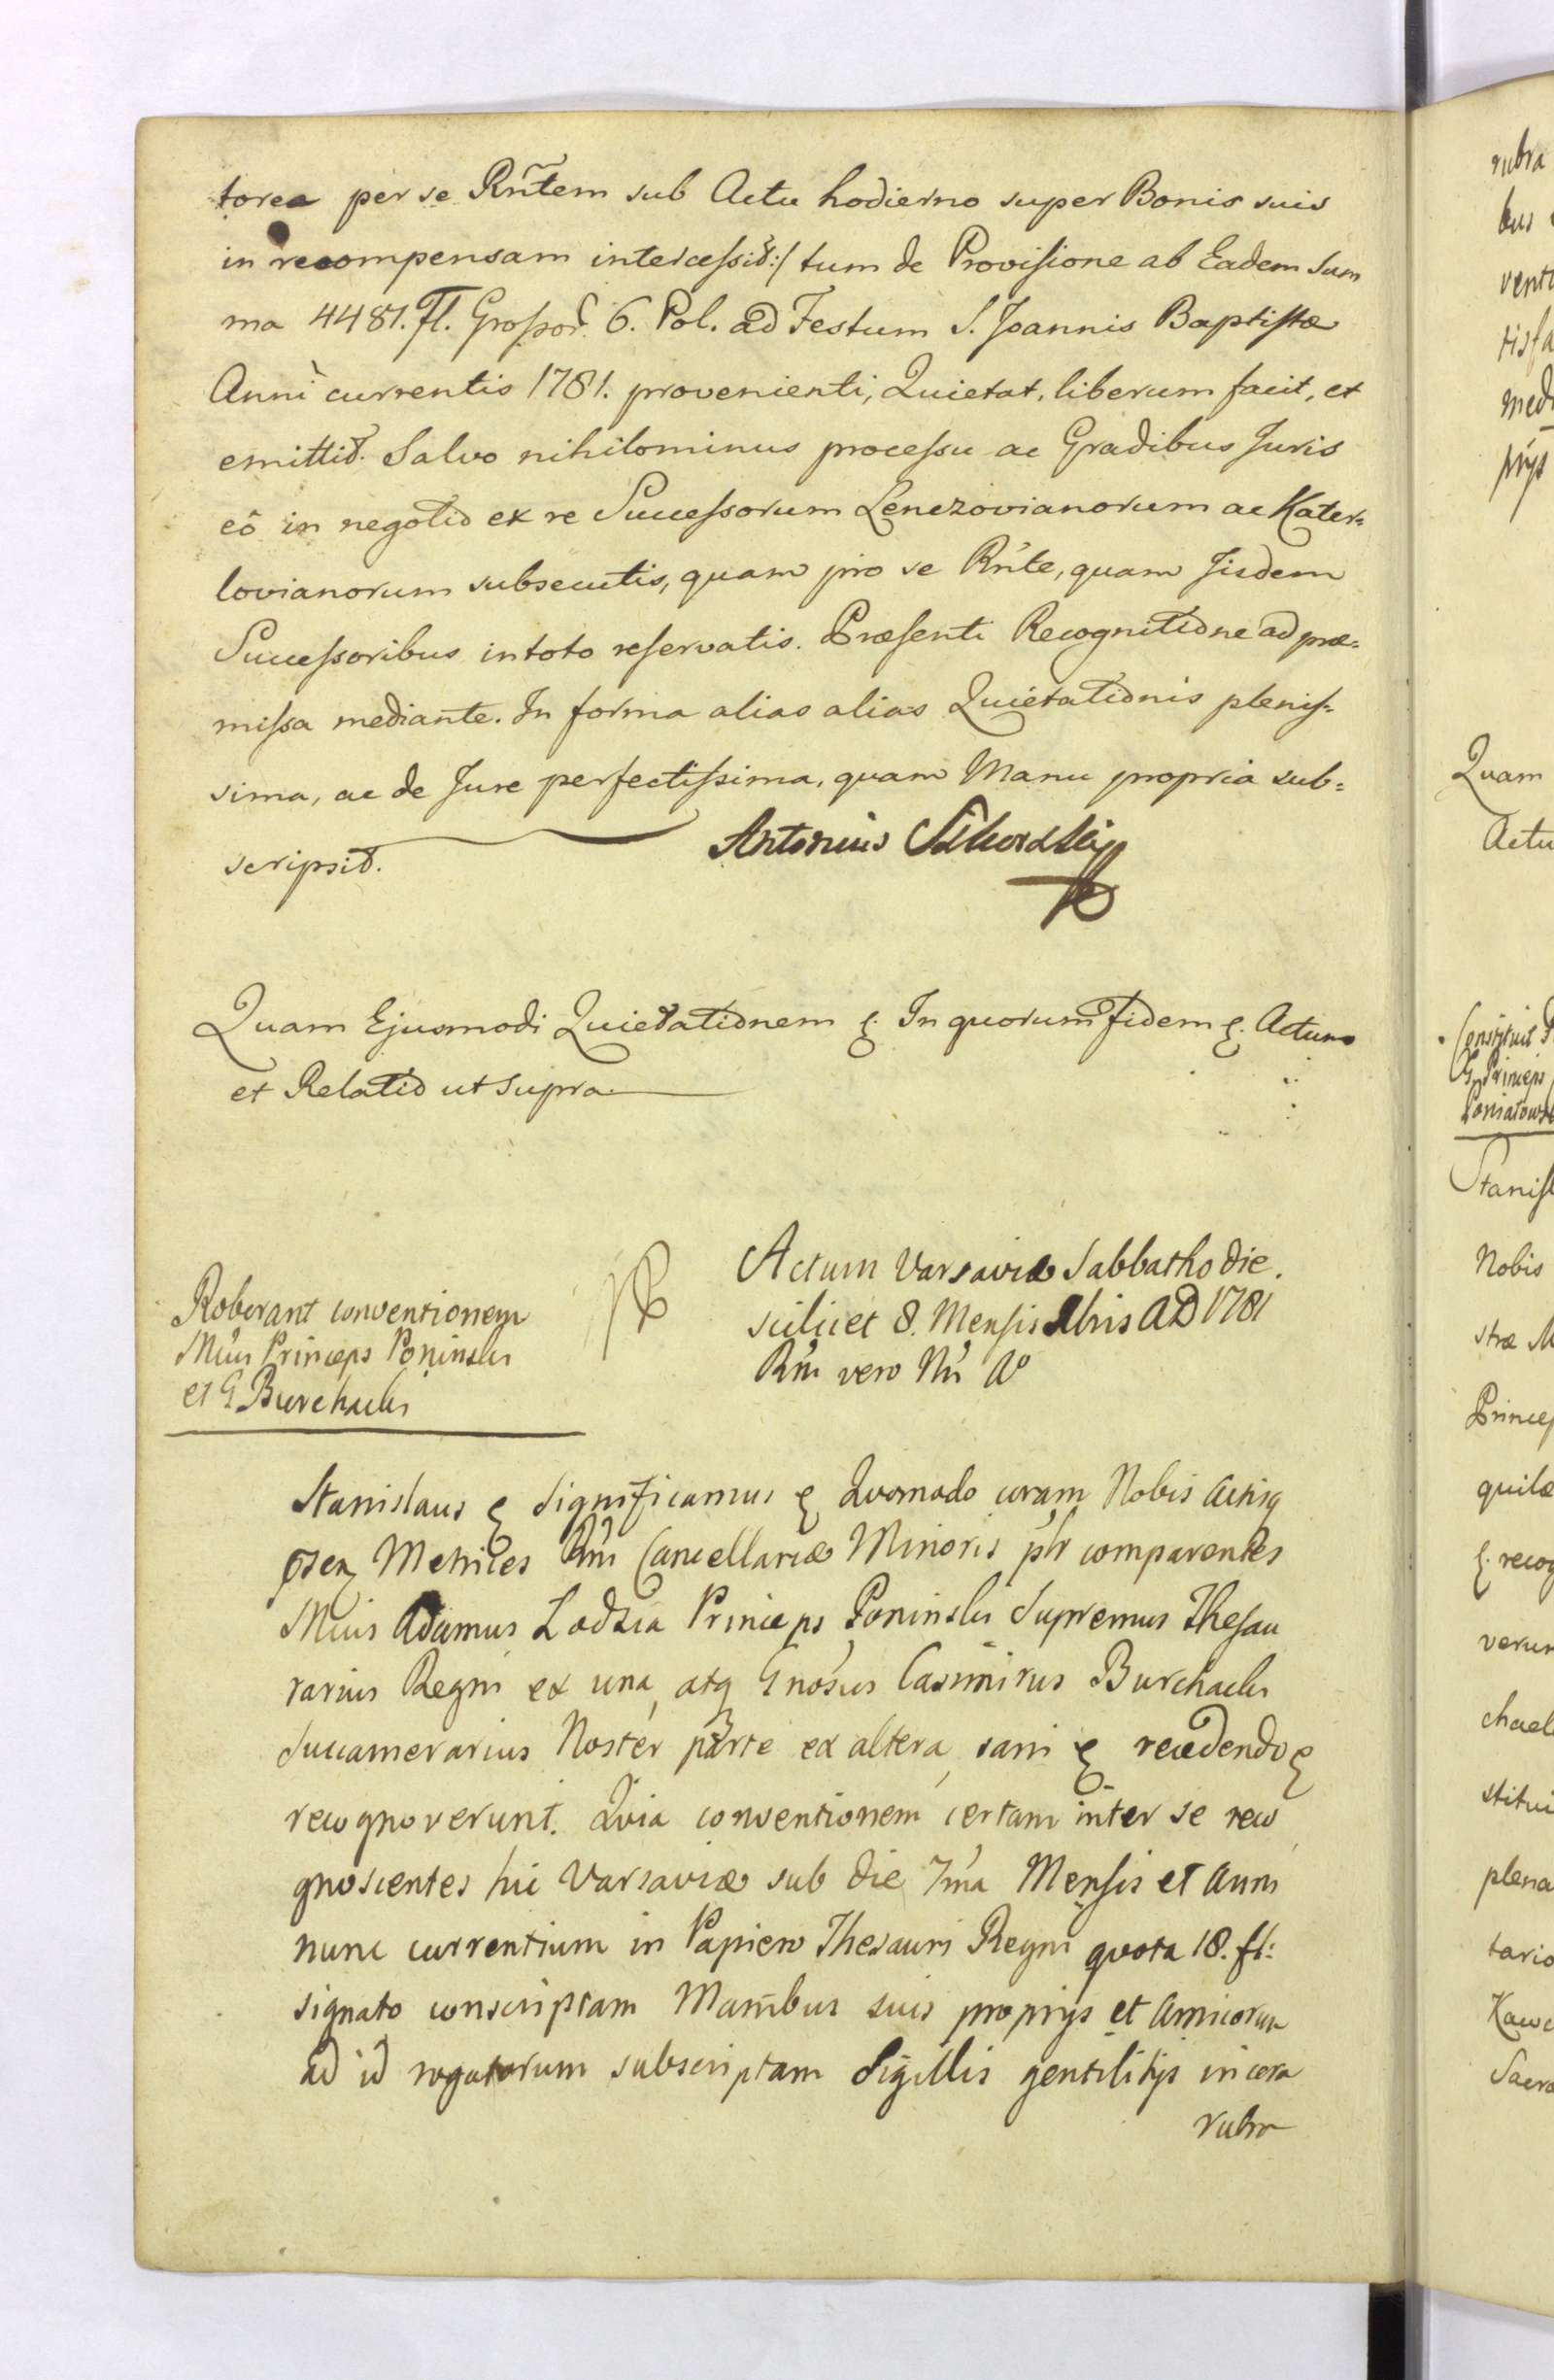 torea per se Rñtem sub Actu hodierno super Bonis suis
in recompensam intercessit:/ tum de Provisione ab Eadem Sum
ma 4481. Fl. Grossor. 6. Pol. ad Festum S. Joannis Baptistæ
Anni currentis 1781. provenienti, Quietat, liberum facit, et
emittit. Salvo nihilominus processu ac Gradibus Juris
eô in negotio ex re Successorum Lenczovianorum ac Kater=
lovianorum subsecutis, quam pro se Rńte, quam Jisdem
Successoribus in toto reservatis. Præsenti Recognitione ad præ=
missa mediante. In forma alias alias Quietationis plenis=
sima, ac de Jure perfectissima, quam Manu propria sub=
scripsit. Antonius
Quam Ejusmodi Quietationem &. In quorum fidem &. Actum
et Relatio ut Supra.
Roborant conventionem
Princeps Poninski
et G Burchacki
Actum Varsaviæ Sabbatho die
scilicet 8. Mensis AD 1781
vero
Stanislaus & Significamus & Quomodo coram Nobis Actisq
Metrices Cancellariæ Minoris plr comparentes
Adamus Lodzia Princeps Poninski Supremus Thesau
rarius Regni ex una, atq Gnosus Casimirus Burchacki
Succamerarius Noster parte ex altera, sani & recedendo &
recognoverunt. Quia conventionem certam inter se reco
gnoscentes hic Varsaviæ sub die 7má Mensis et Anni
nunc currentium in Papiero Thesauri Regni quota 18. fl:
signato conscriptam Manibus suis proprijs et Amicorum
ad id rogatorum subscriptam Sigillis gentilitijs in cera
rubra